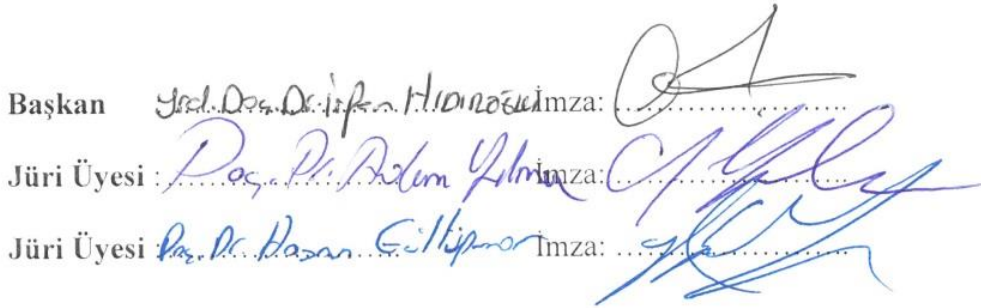 Başkan Yrd. Doç. Dr. İrfan HIDIROĞLU İmza: ....................
Jüri Üyesi : Doç. Dr. Adem Yılmaz İmza: ....................
Jüri Üyesi : Doç. Dr. Hasan Güllüpınar İmza: ....................